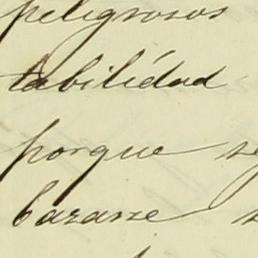 peligrosos
tabilidad
porque se
bazarse s